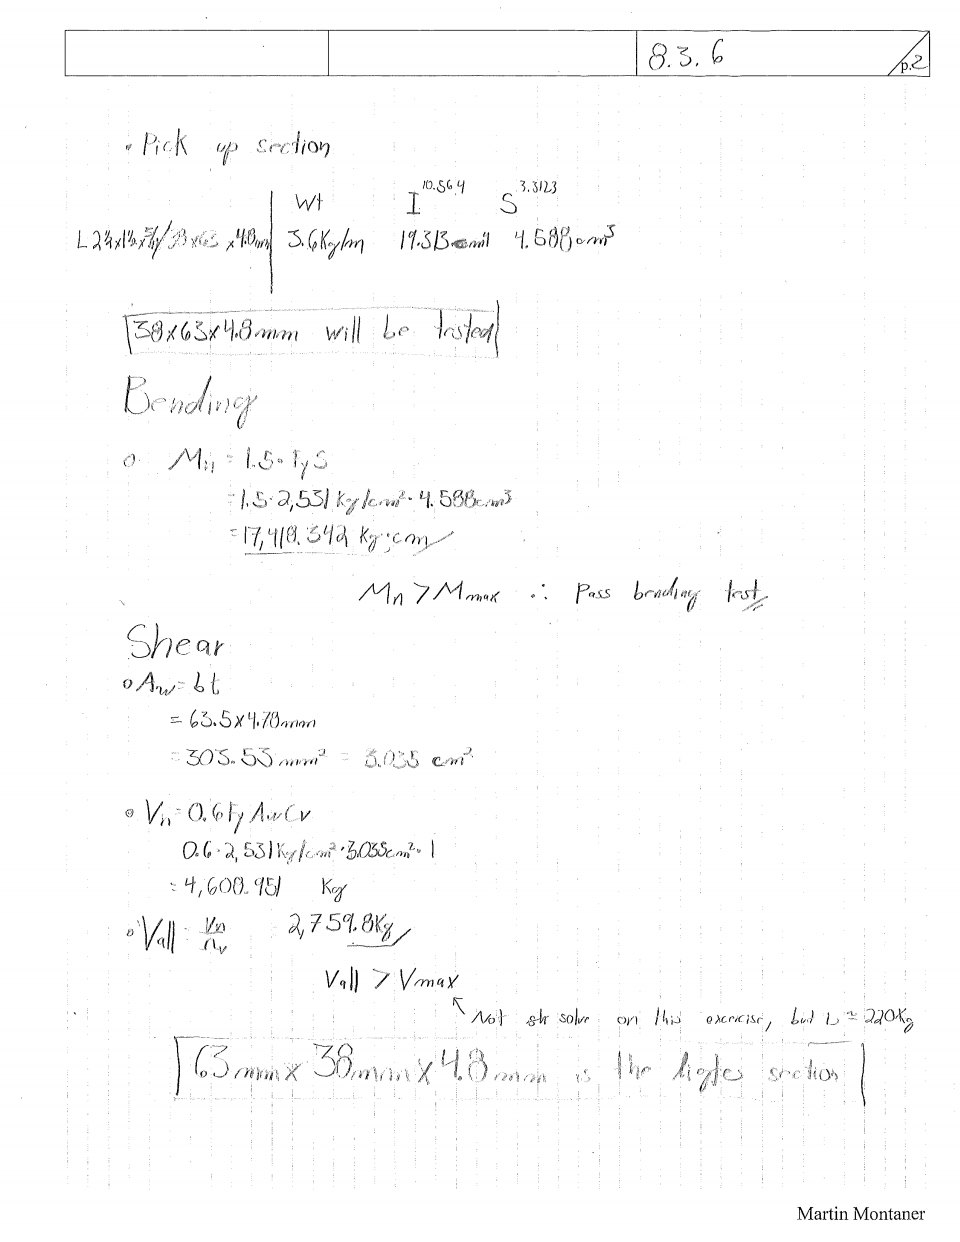 8.3.6 p.2
• Pick up section
Wt I 10.564 S 3.3123
L 2½x1½x / 38x63 x4.8mm 3.6Kg/m 19.313 cm4 4.588cm³
38x63x4.8mm will be tested
Bending
o Mn = 1.5 · Fy S
= 1.5 · 2,531 Kg/cm² · 4.588cm³
= 17,418.342 Kg·cm
Mn > Mmax ∴ Pass bending test
Shear
o Aw = bt
= 63.5 x 4.78mm
= 303.53 mm² = 3.035 cm²
o Vn = 0.6 Fy Aw Cv
0.6 · 2,531 Kg/cm² · 3.035cm² · 1
= 4,608.951 Kg
o Vall = Vn/Ωv = 2,759.8Kg
Vall > Vmax
Not solve on this exercise, but is ≈ 220Kg
63mm x 38mm x 4.8mm is the section
Martin Montaner